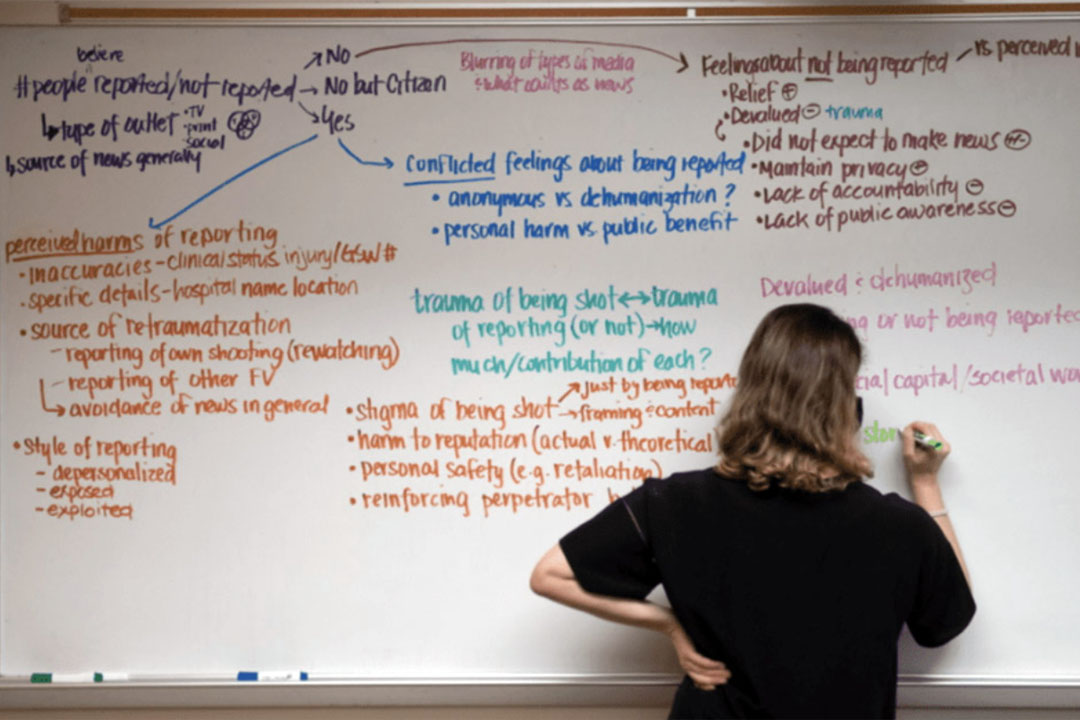 believe
#people reported/not reported
→ No
→ No but Citizen
→ Yes
↳ type of outlet
• TV
• print
social
↳ source of news generally
Blurring of types of media
: what counts as news
Feelings about not being reported
vs perceived
• Relief +
• Devalued - trauma
• Did not expect to make news +/-
• Maintain privacy
• Lack of accountability -
• Lack of public awareness -
Conflicted feelings about being reported
• anonymous vs dehumanization?
• personal harm vs public benefit
perceived harms of reporting
• Inaccuracies - clinical status, injury/GSW #
• specific details - hospital name location
• source of retraumatization
- reporting of own shooting (rewatching)
- reporting of other FV
↳ avoidance of news in general
• Style of reporting
- depersonalized
- exposed
- exploited
trauma of being shot ↔ trauma
of reporting (or not) → how
much/contribution of each?
• stigma of being shot
→ just by being report
→ framing : content
• harm to reputation (actual v. theoretical
• personal safety (e.g. retaliation)
• reinforcing perpetrator
Devalued : dehumanized
or not being reported
capital/societal